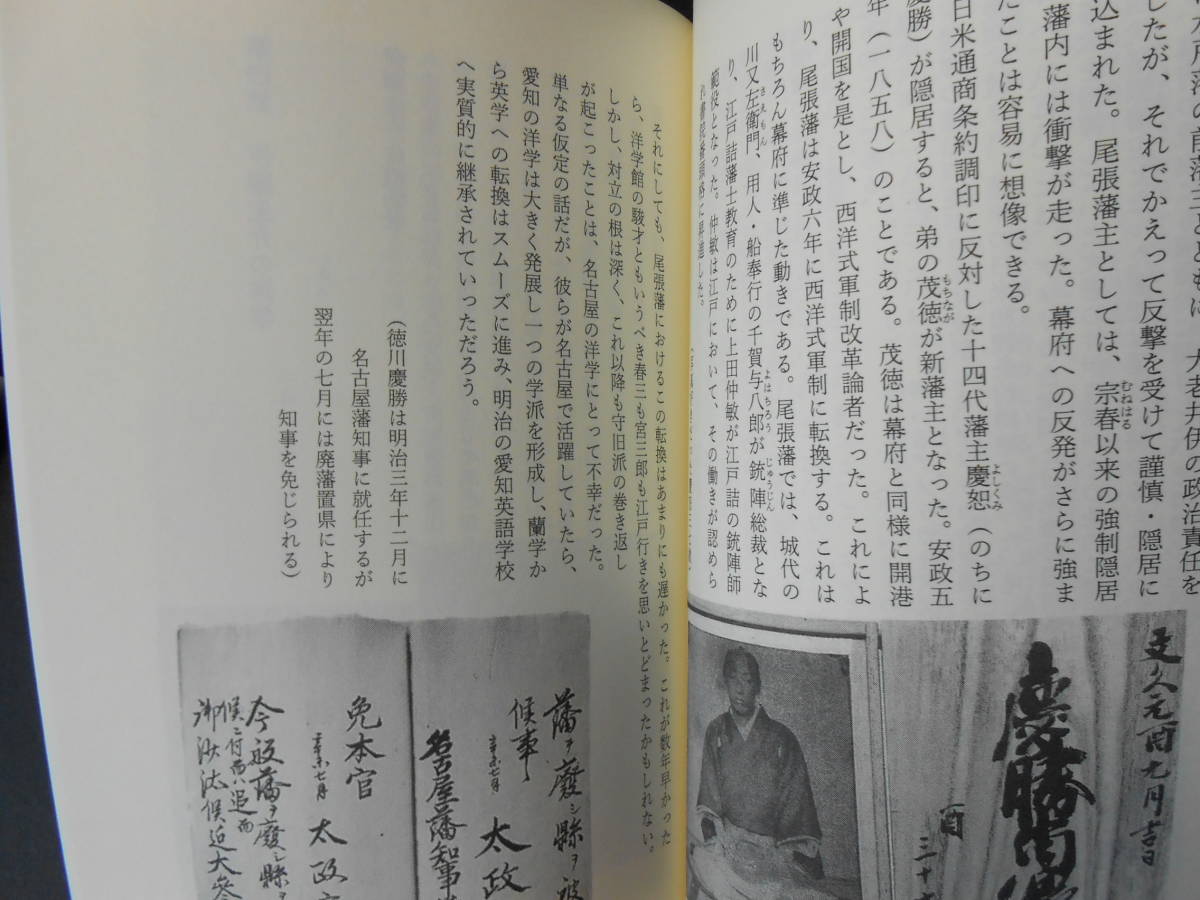 大老井伊の政治責任を
したが、それでかえって反撃を受けて謹慎・隠居に
込まれた。尾張藩主としては、宗春以来の強制隠居
むねはる
藩内には衝撃が走った。幕府への反発がさらに強ま
たことは容易に想像できる。
日米通商条約調印に反対した十四代藩主慶恕（のちに
よしくみ
慶勝）が隠居すると、弟の茂徳が新藩主となった。安政五
もちなが
年（一八五八）のことである。茂徳は幕府と同様に開港
や開国を是とし、西洋式軍制改革論者だった。これによ
り、尾張藩は安政六年に西洋式軍制に転換する。これは
もちろん幕府に準じた動きである。尾張藩では、城代の
川又左衛門、用人・船奉行の千賀与八郎が銃陣総裁とな
さえもん
よはちろう
じゅうじん
り、江戸詰藩士教育のために上田仲敏が江戸詰の銃陣師
範役となった。仲敏は江戸において、その働きが認めら
れ書院番頭格に昇進した。
それにしても、尾張藩におけるこの転換はあまりにも遅かった。これが数年早かった
ら、洋学館の駿才ともいうべき春三も宮三郎も江戸行きを思いとどまったかもしれない。
しかし、対立の根は深く、これ以降も守旧派の巻き返し
が起こったことは、名古屋の洋学にとって不幸だった。
単なる仮定の話だが、彼らが名古屋で活躍していたら、
愛知の洋学は大きく発展し一つの学派を形成し、蘭学か
ら英学への転換はスムーズに進み、明治の愛知英語学校
へ実質的に継承されていっただろう。
（徳川慶勝は明治三年十二月に
名古屋藩知事に就任するが
翌年の七月には廃藩置県により
知事を免じられる）
文久元酉九月吉日
慶勝
酉
三十
藩ヲ廃シ縣ヲ被
候事
太政
名古屋藩知事
免本官
太政
今般藩ヲ廃シ縣
候ニ付而ハ追而
御沙汰候迄大参